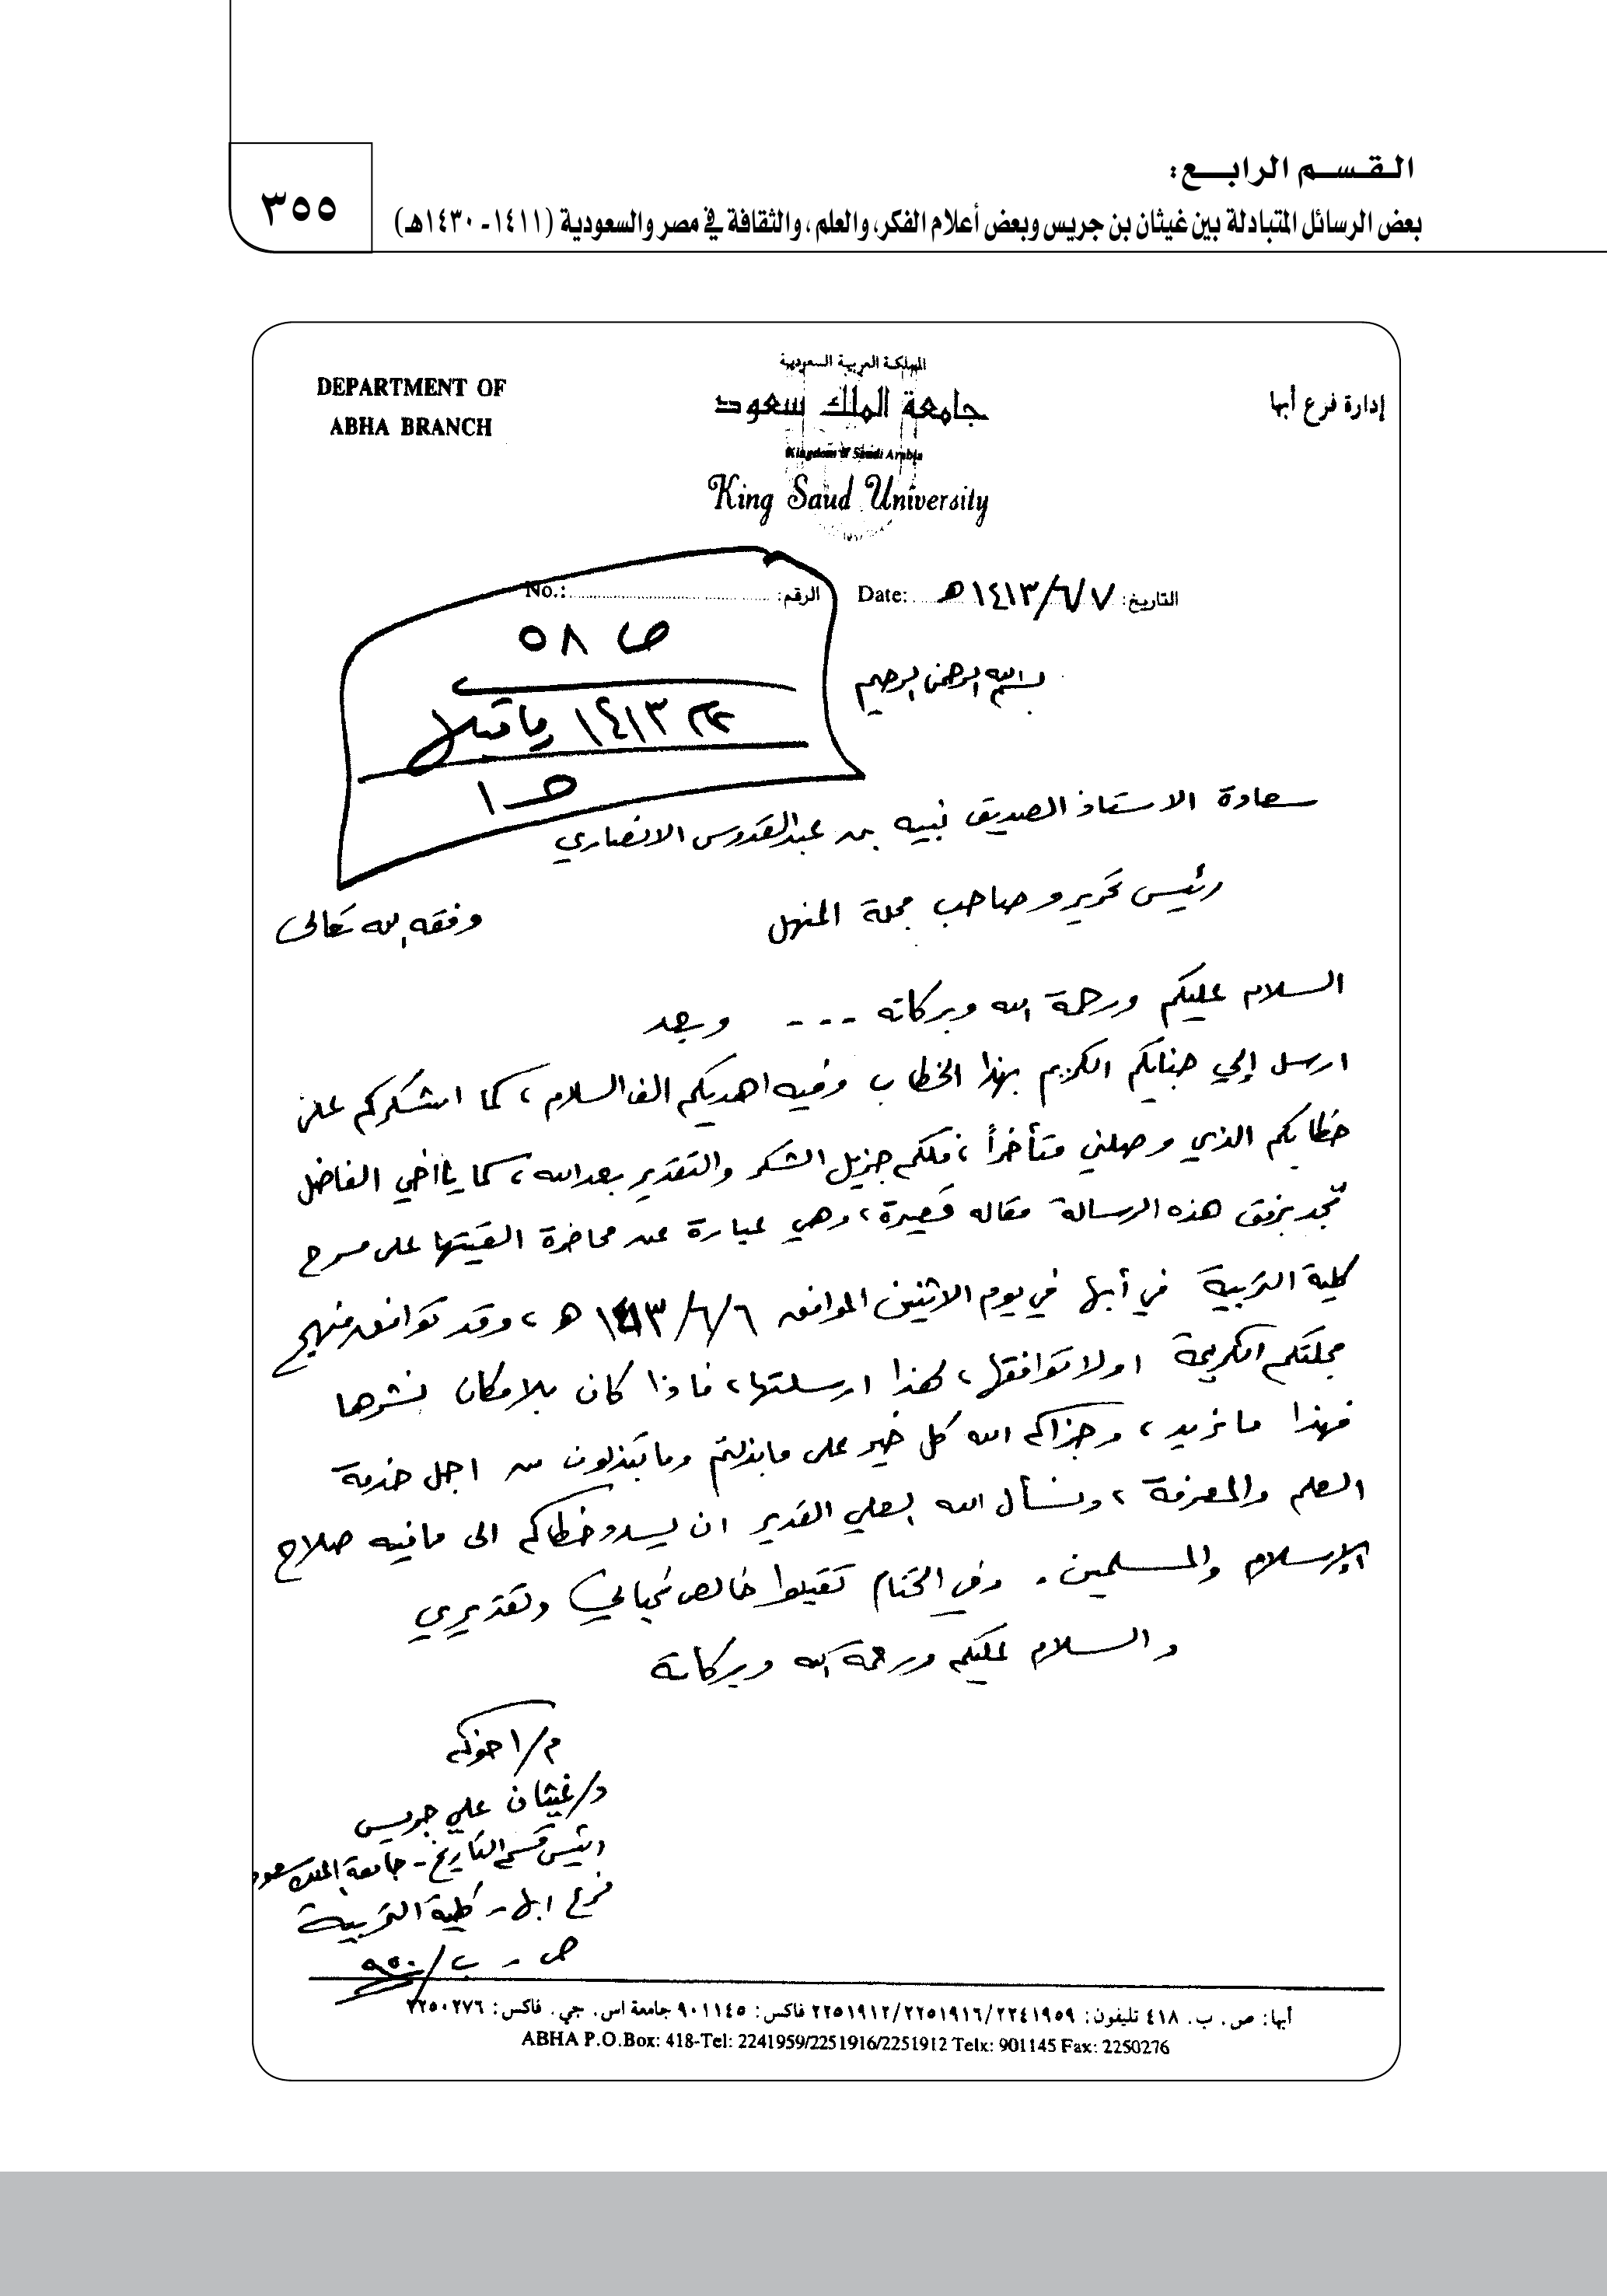 القسم الرابع:
بعض الرسائل المتبادلة بين غيثان بن جريس وبعض أعلام الفكر، والعلم، والثقافة في مصر والسعودية (١٤١١- ١٤٣٠هـ)
٣٥٥
المملكة العربية السعودية
DEPARTMENT OF
ABHA BRANCH
جامعة الملك سعود
إدارة فرع أبها
Kingdom of Saudi Arabia
King Saud University
التاريخ: ٧/٦/١٤١٣هـ Date:
الرقم: No.:
ص ٥٨
١٤١٣ وما قبل
ص ١
بسم الله الرحمن الرحيم
سعادة الاستاذ الصديق نبيه بن عبدالقدوس الانصاري
رئيس تحرير وصاحب مجلة المنهل
وفقه الله تعالى
السلام عليكم ورحمة الله وبركاته --- وبعد
ارسل إلي جنابكم الكريم بهذا الخطاب وفيه اهديكم الف السلام، كما اشكركم على
خطابكم الذي وصلني متأخراً، فلكم جزيل الشكر والتقدير بعد الله، كما يا أخي الفاضل
تجد برفق هذه الرسالة مقاله قصيرة، وهي عبارة عن محاضرة القيتها على مسرح
كلية التربية في أبها في يوم الاثنين الموافق ٦/٦/١٤١٣ هـ، وقد توافق منهج
مجلتكم الكريمة اولا توافقها، لهذا ارسلتها، فاذا كان بلامكان نشرها
فهذا ما نريد، وجزاكم الله كل خير على مابذلتم وما تبذلون من اجل خدمة
العلم والمعرفة، ونسأل الله العلي القدير ان يسدد خطاكم الى مافيه صلاح
الإسلام والمسلمين. وفي الختام تقبلوا خالص تحياتي وتقديري
والسلام عليكم ورحمة الله وبركاته
م/اخوكم
د/غيثان علي جريس
رئيس قسم التاريخ - جامعة الملك سعود
فرع ابها - كلية التربية
ص - ب/٩٥٠
أبها: ص. ب. ٤١٨ تليفون: ٢٢٤١٩٥٩/٢٢٥١٩١٦/٢٢٥١٩١٢ فاكس: ٩٠١١٤٥ جامعة اس. جي. فاكس: ٢٢٥٠٢٧٦
ABHA P.O.Box: 418-Tel: 2241959/2251916/2251912 Telx: 901145 Fax: 2250276